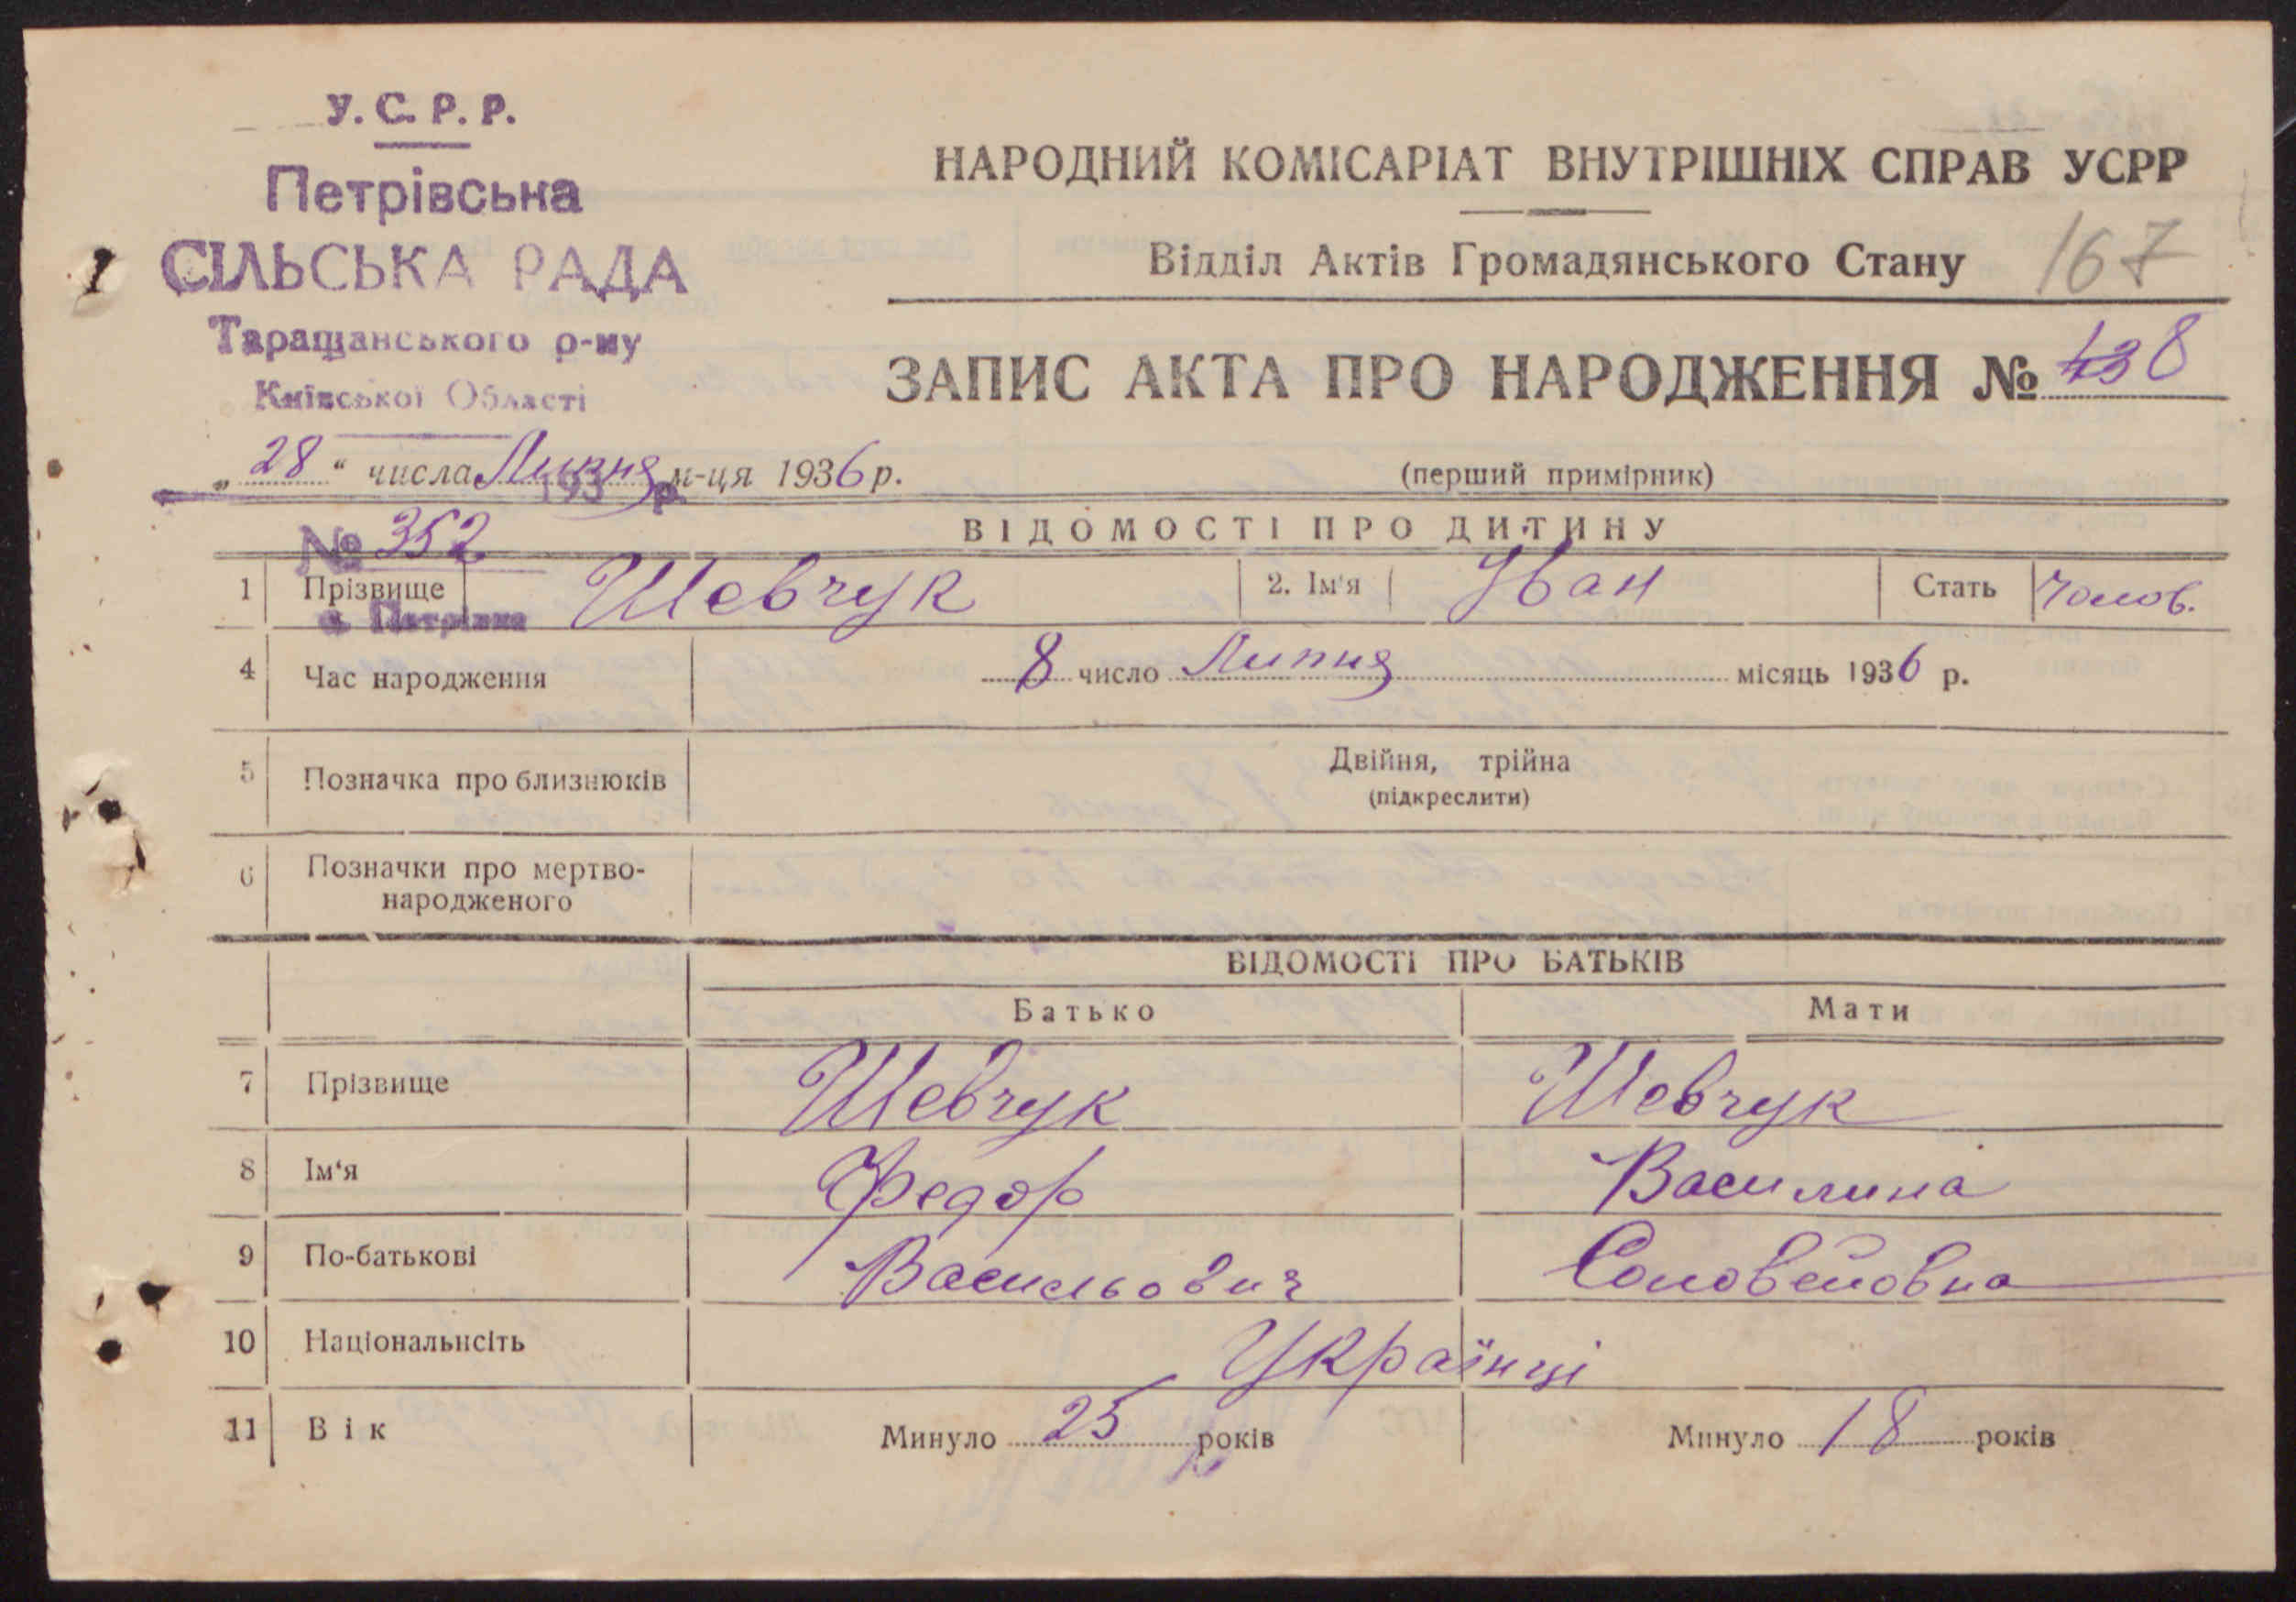 У. С. Р. Р.
Петрівська
СІЛЬСЬКА РАДА
Таращанського р-ну
Київської Області
НАРОДНИЙ КОМІСАРІАТ ВНУТРІШНІХ СПРАВ УСРР
Відділ Актів Громадянського Стану 167
ЗАПИС АКТА ПРО НАРОДЖЕННЯ № 8
„28“ числа Липня м-ця 1936 р.
193 р.
(перший примірник)
№ 352
ВІДОМОСТІ ПРО ДИТИНУ
1 Прізвище Шевчук 2. Ім'я Іван Стать Чолов.
с. Петрівка
4 Час народження 8 число Липня місяць 1936 р.
5 Позначка про близнюків Двійня, трійна
(підкреслити)
6 Позначки про мертво-
народженого
ВІДОМОСТІ ПРО БАТЬКІВ
Батько Мати
7 Прізвище Шевчук Шевчук
8 Ім‘я Федор Василина
9 По-батькові Васильович Соловейовна
10 Національнсіть Українці
11 Вік Минуло 25 років Минуло 18 років